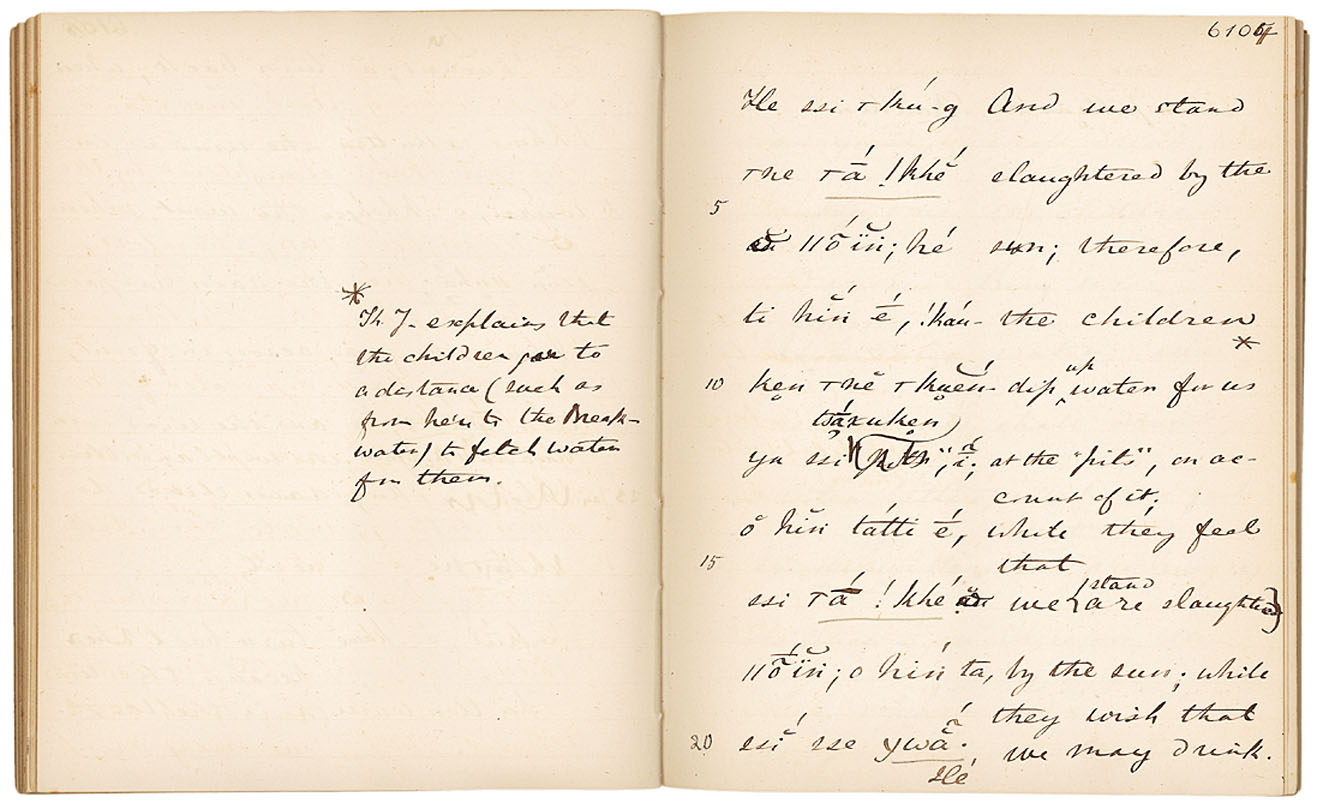 *
Th. J. explains that
the children go to
a distance (such as
from here to the Break-
water) to fetch water
for them.
6104
He ssi τkú-g And we stand
τne τā́ !khĕ́ slaughtered by the
5
ŭn ǁṓïṅ; hé sun; therefore,
ti hĭń é̄, !káu- the children
*
10 ken τnĕ τkuĕń- dip up water for us
tsáxuken
ya ssi "pits", ī́; at the "pits", on ac-
count of it;
ŏ hĭń tátti é̄, while they feel
15 that
ssi τā́ !khé ŭn we (stand are slaughtered)
ǁṓïn; o hiń ta, by the sun; while
they wish that
20 ssĭ́ sse ywā̃́. we may drink.
Hé